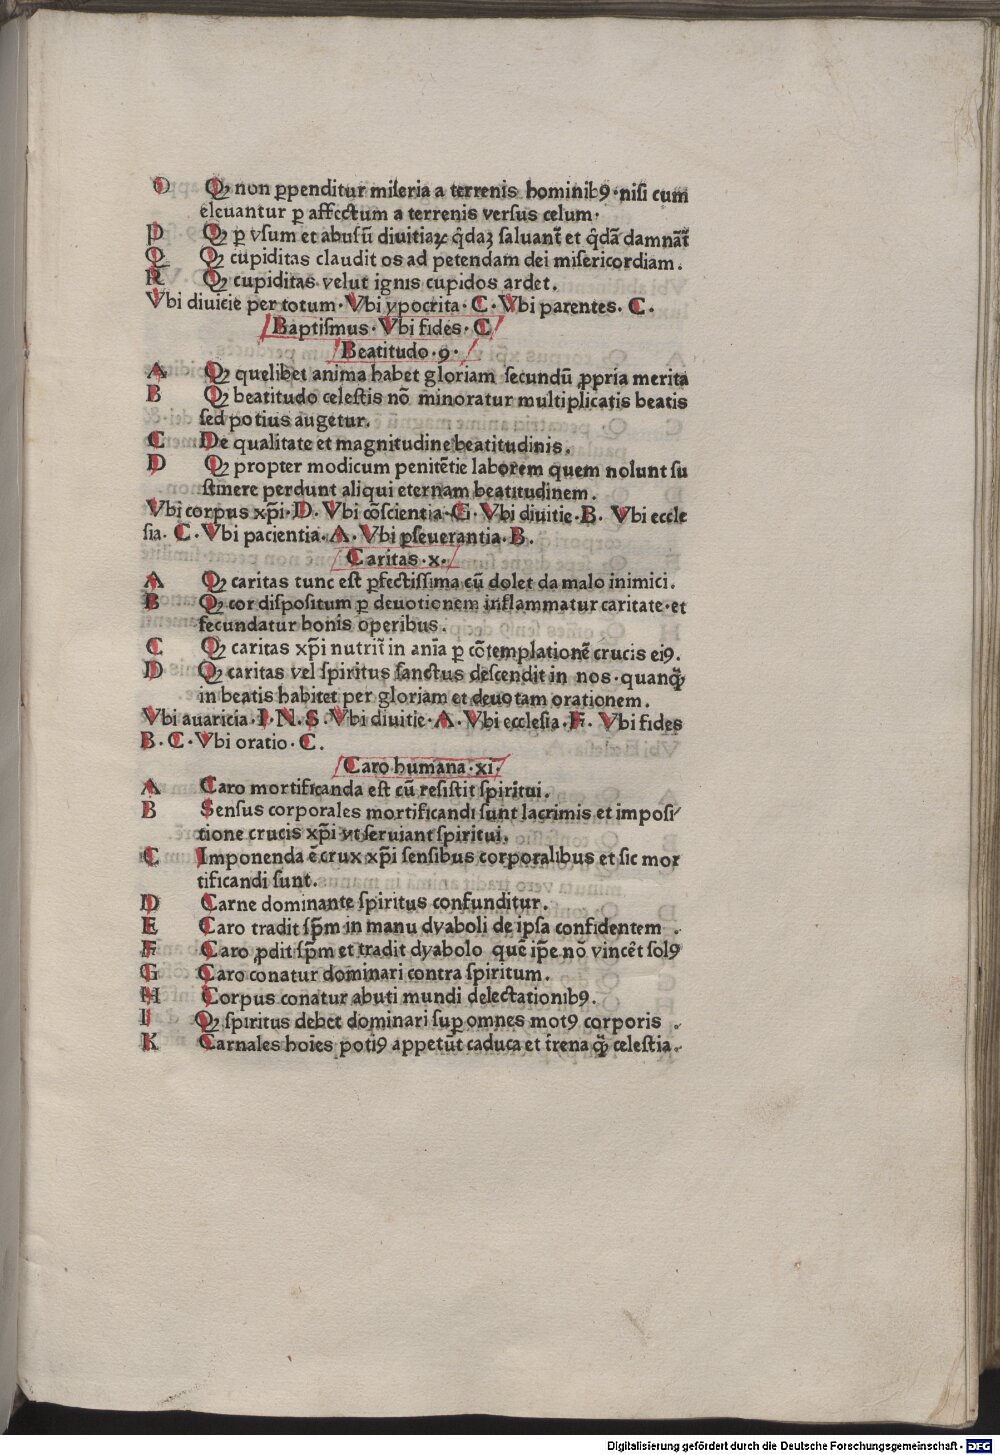 O Qꝫ non ꝑpenditur miseria a terrenis hominibꝰ·nisi cum
eleuantur ꝑ affectum a terrenis versus celum·
P Qꝫ ꝑ vsum et abusū diuitiaꝝ q̄daꝫ saluant̄ et q̄dā damnāt̄
Q Qꝫ cupiditas claudit os ad petendam dei misericordiam.
R Qꝫ cupiditas velut ignis cupidos ardet.
Vbi diuicie per totum·Vbi ypocrita·C·Vbi parentes.C.
Baptismus·Vbi fides·C
Beatitudo·9·
A Qꝫ quelibet anima habet gloriam secundū ꝓpria merita
B Qꝫ beatitudo celestis nō minoratur multiplicatis beatis
sed potius augetur.
C De qualitate et magnitudine beatitudinis.
D Qꝫ propter modicum penitētie laborem quem nolunt su
stinere perdunt aliqui eternam beatitudinem.
Vbi corpus xp̄i·D.Vbi cōscientia·G·Vbi diuitie·B. Vbi eccle
sia.C·Vbi pacientia·A·Vbi ꝑseuerantia·B.
Caritas·x·
A Qꝫ caritas tunc est ꝑfectissima cū dolet da malo inimici.
B Qꝫ cor dispositum ꝑ deuotionem inflammatur caritate·et
fecundatur bonis operibus.
C Qꝫ caritas xp̄i nutrit̄ in aīa ꝑ cōtemplationē crucis eiꝰ.
D Qꝫ caritas vel spiritus sanctus descendit in nos·quanqꝫ̄
in beatis habitet per gloriam et deuotam orationem.
Vbi auaricia·I·N.S·Vbi diuitie·A·Vbi ecclesia·F·Vbi fides
B·C·Vbi oratio·C.
Caro humana·xi·
A Caro mortificanda est cū resistit spiritui.
B Sensus corporales mortificandi sunt lacrimis et imposi⸗
tione crucis xp̄i vt seruiant spiritui.
C Imponenda ē crux xp̄i sensibus corporalibus et sic mor
tificandi sunt.
D Carne dominante spiritus confunditur.
E Caro tradit sp̄m in manu dyaboli de ipsa confidentem .
F Caro ꝓdit sp̄m et tradit dyabolo quē ip̄e nō vincēt solꝰ
G Caro conatur dominari contra spiritum.
H Corpus conatur abuti mundi delectationibꝰ.
I Qꝫ spiritus debet dominari suꝑ omnes motꝰ corporis .
K Carnales hoīes potiꝰ appetūt caduca et t̄rena qꝫ̄ celestia.
Digitalisierung gefördert durch die Deutsche Forschungsgemeinschaft - DFG